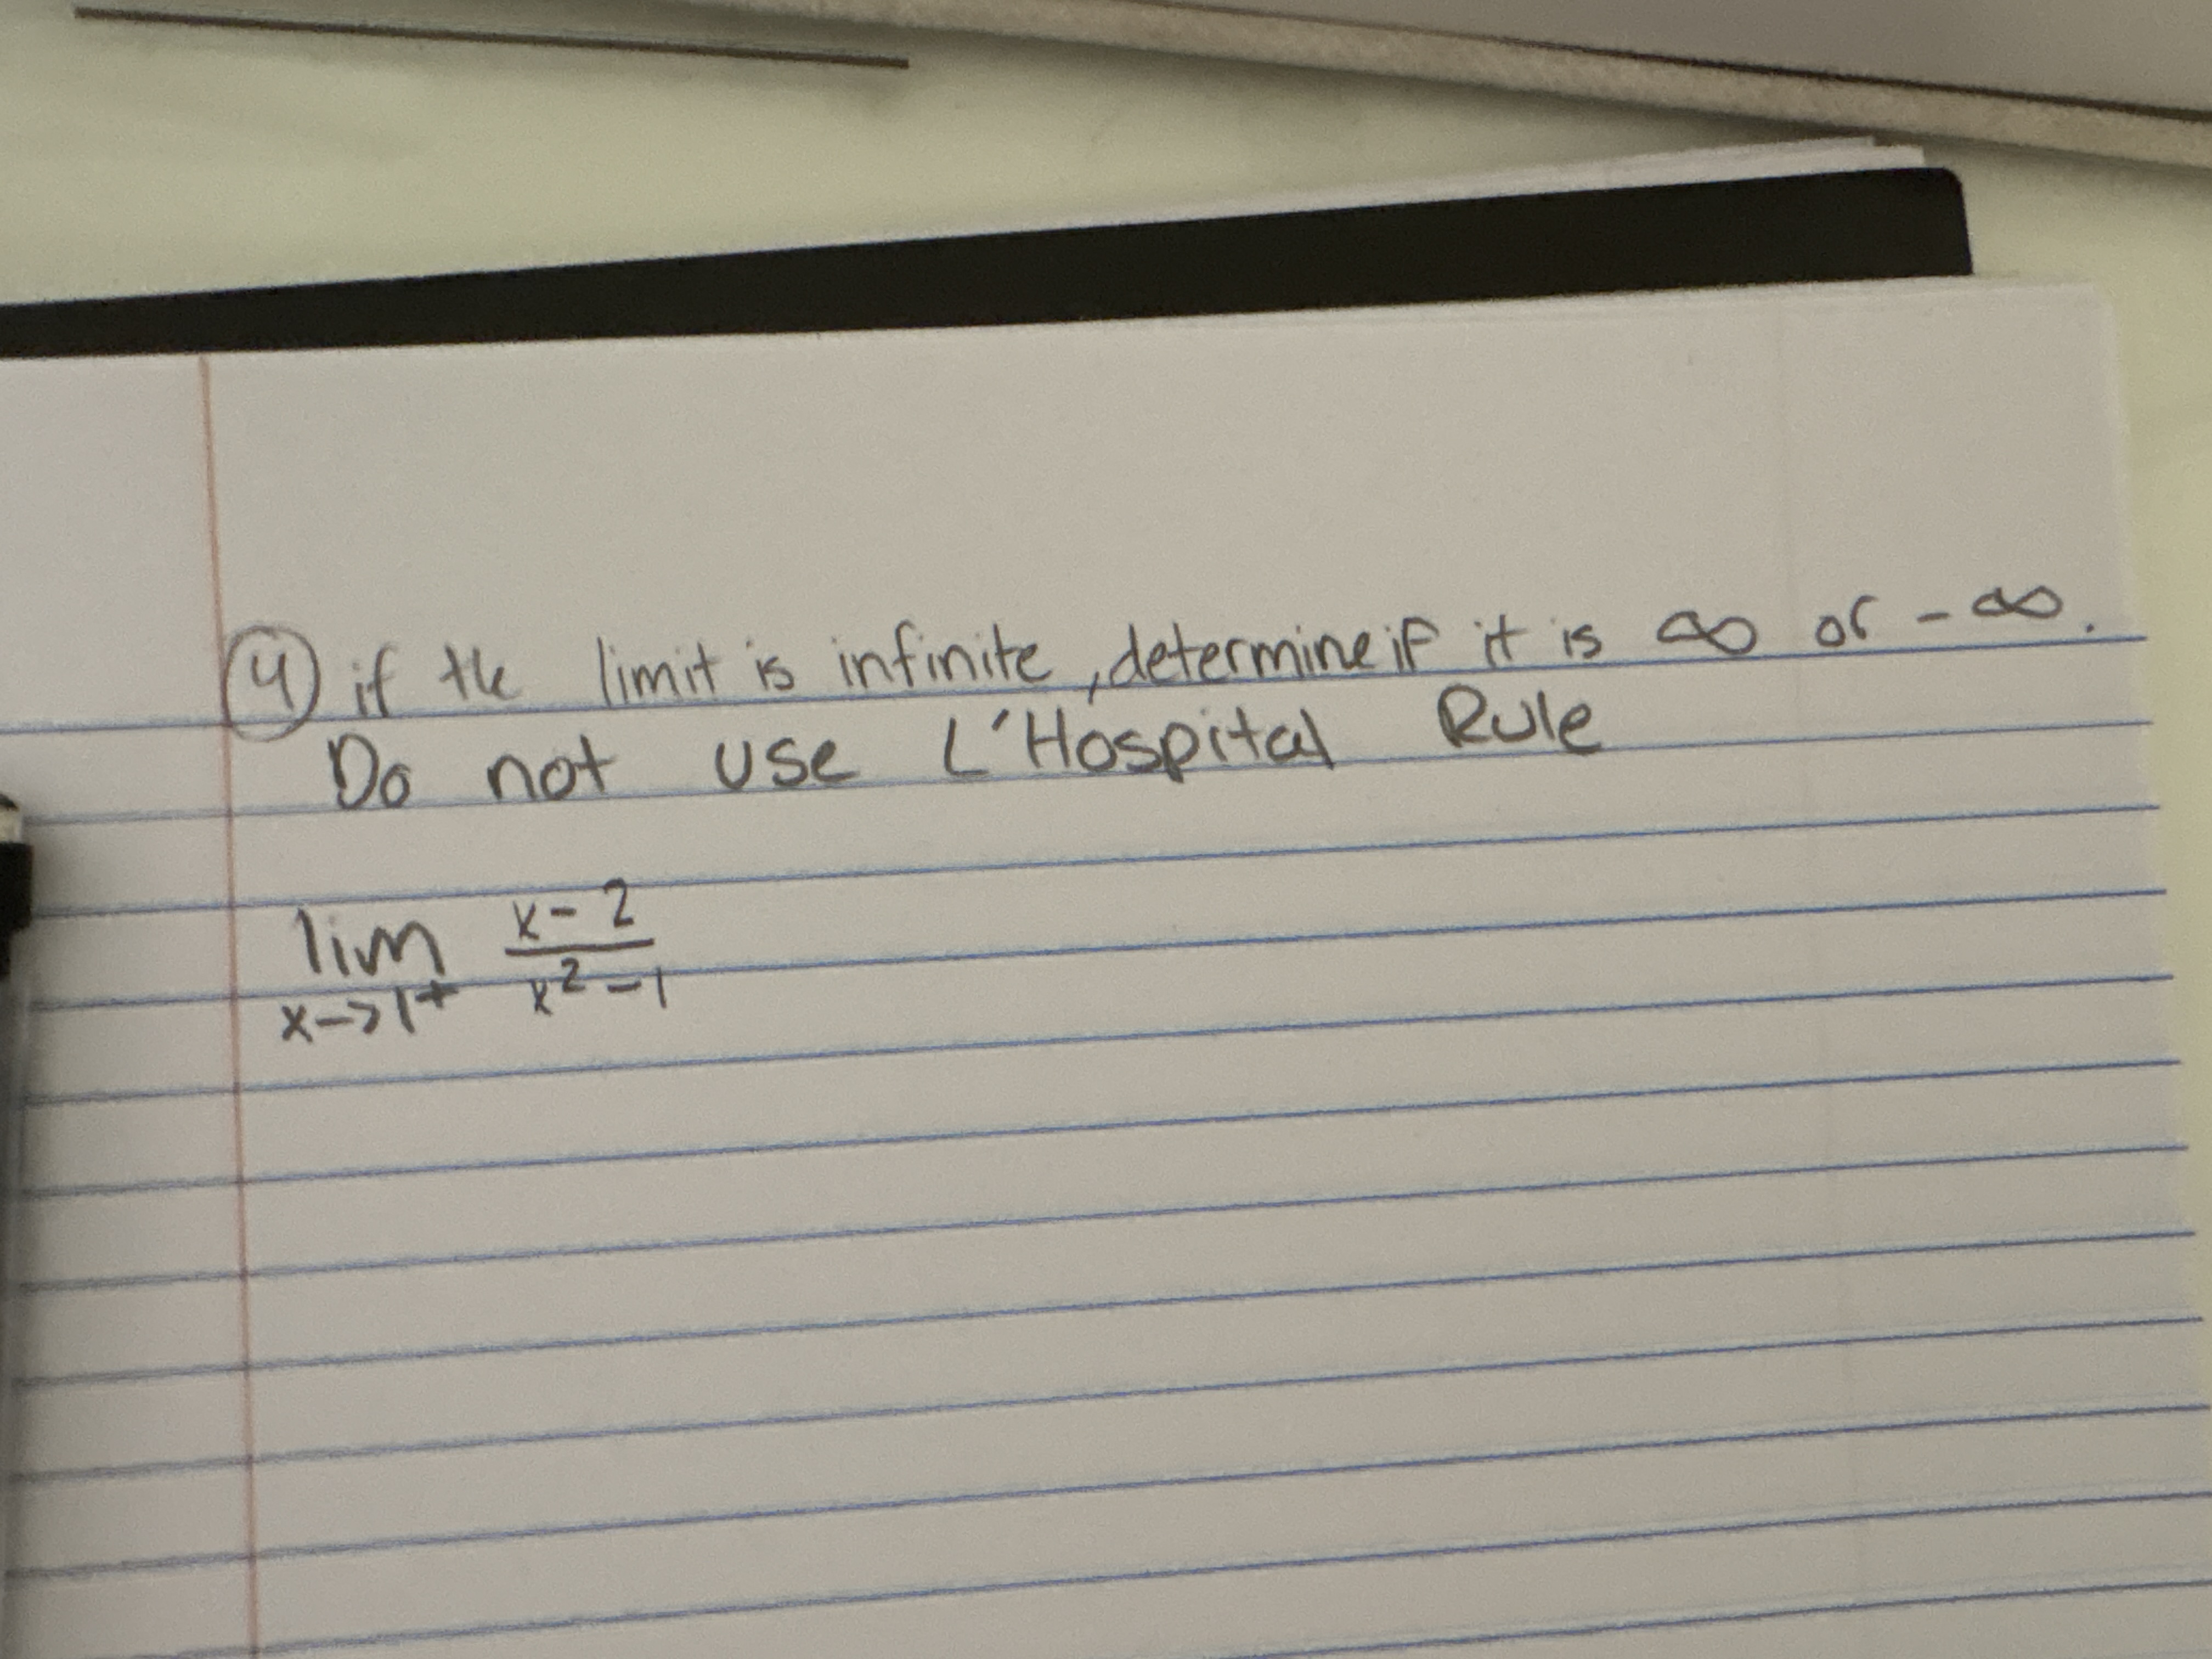 ④ if the limit is infinite, determine if it is ∞ or -∞.
Do not use L'Hospital Rule
lim x→1⁺ x-2 / x²-1